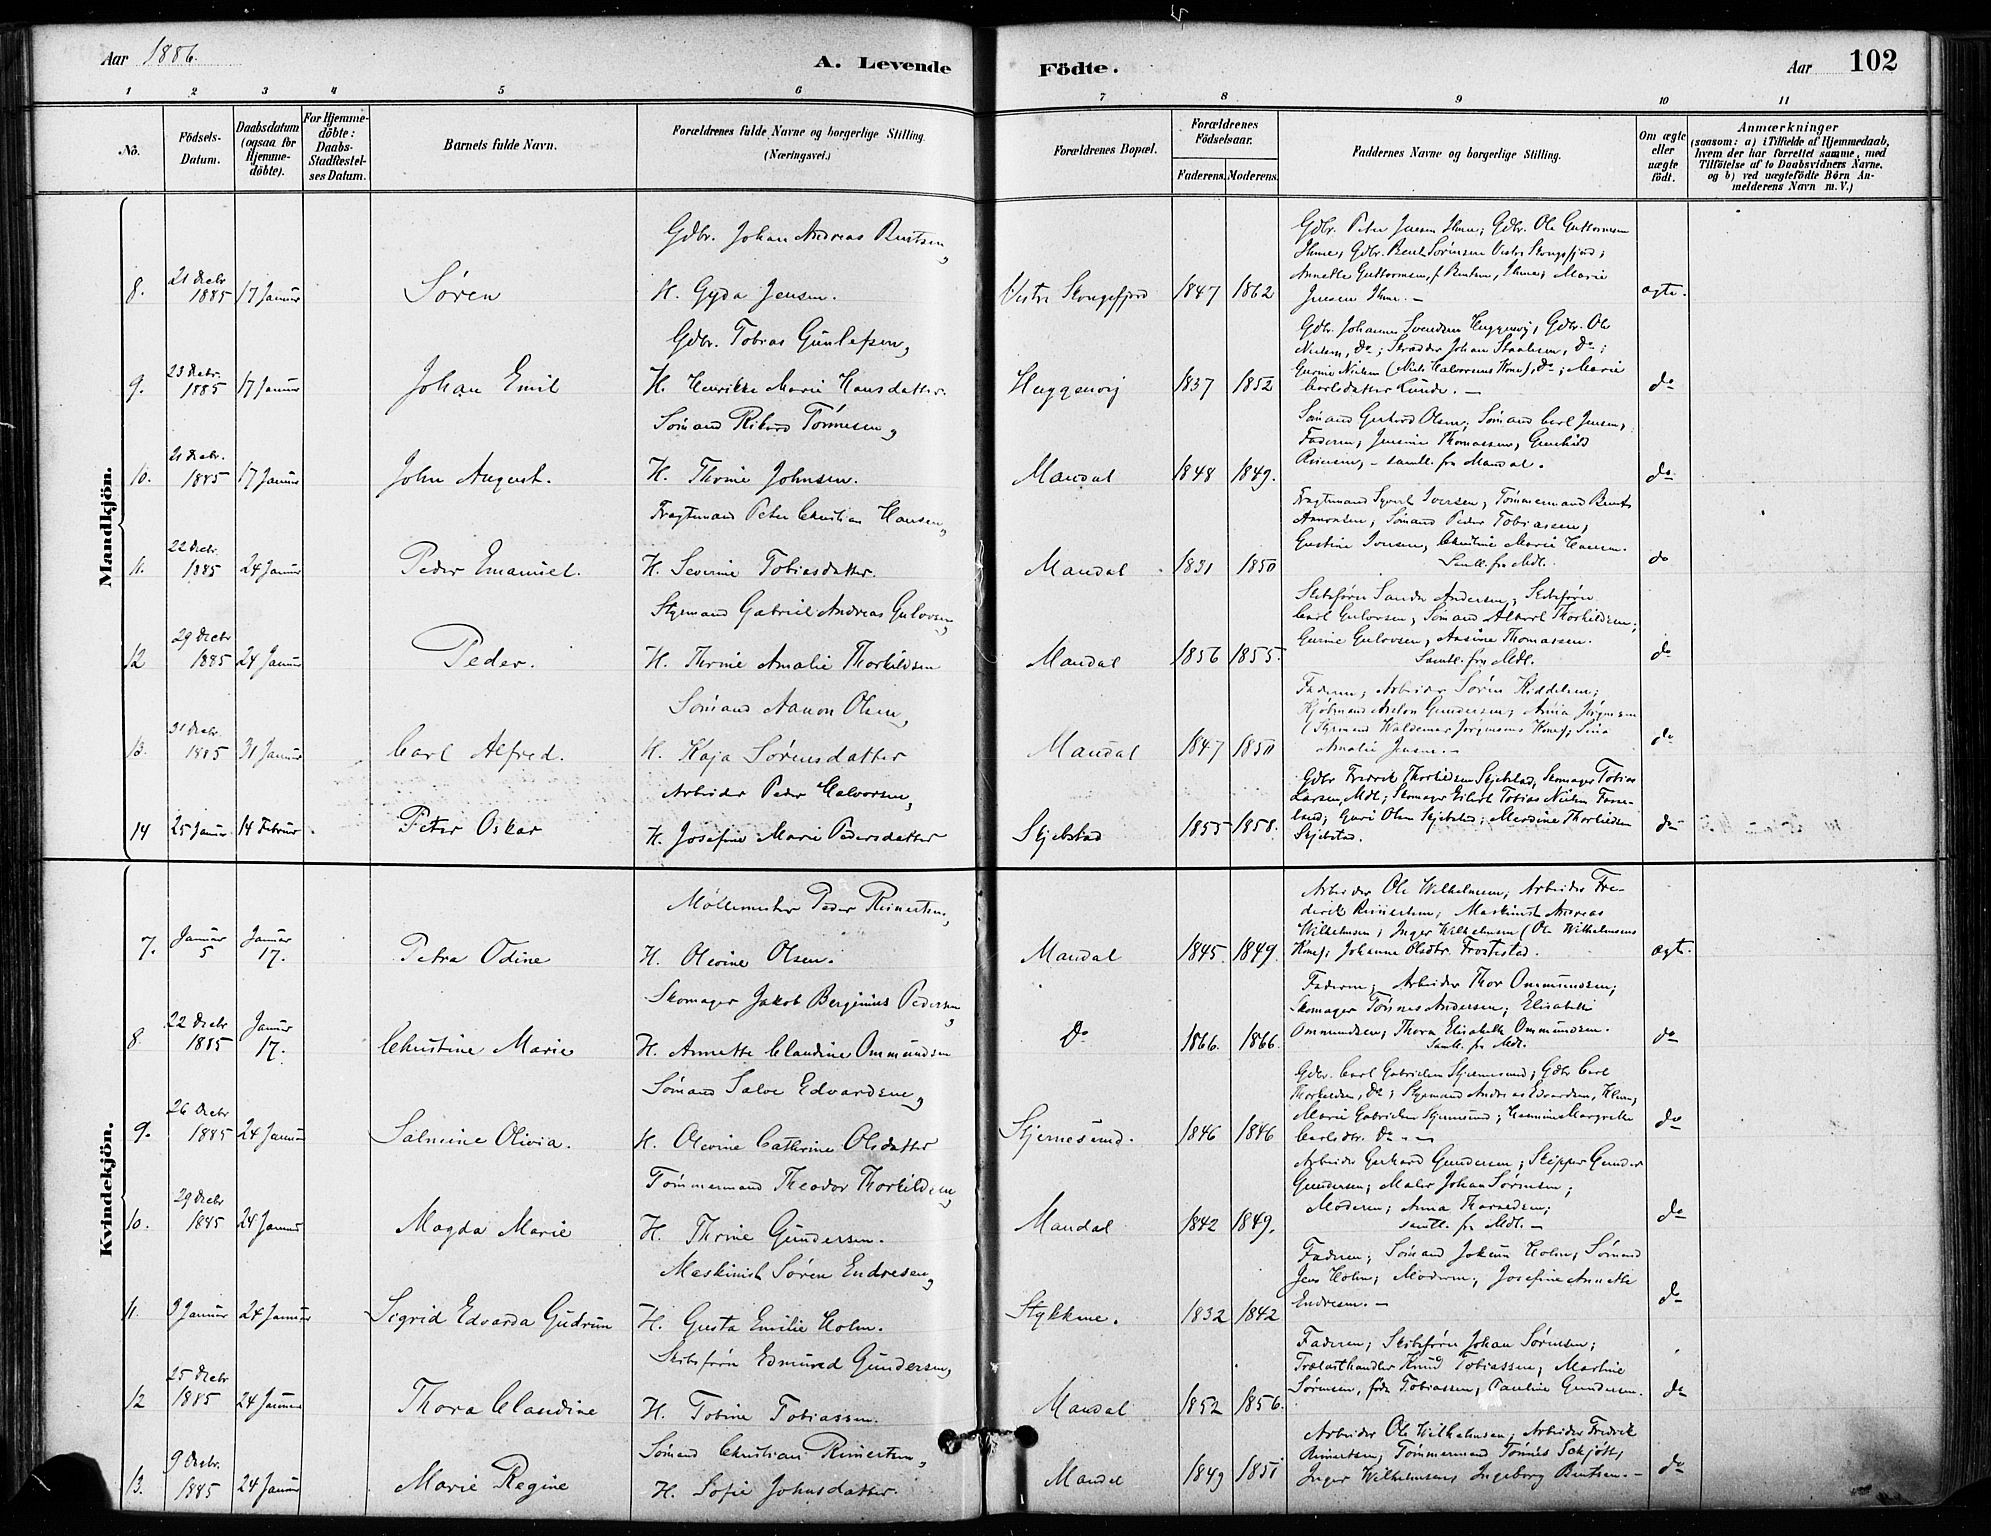 Aar 1886.
A. Levende Födte.
Aar 102
1 2 3 4 5 6 7 8 9 10 11
No.
Födsels-Datum.
Daabsdatum (ogsaa for Hjemmedöbte).
For Hjemmedöbte: Daabs-Stadfestelses Datum.
Barnets fulde Navn.
Forældrenes fulde Navne og borgerlige Stilling. (Næringsvei.)
Forældrenes Bopæl.
Forældrenes Födselsaar.
Faderens. Moderens.
Faddernes Navne og borgerlige Stilling.
Om ægte eller uægte födt.
Anmærkninger
(saasom: a) i Tilfælde af Hjemmedaab, hvem der har forrettet samme, med Tilföielse af to Daabsvidners Navne, og b) ved uægtefödte Börn Anmelderens Navn m. V.)
Mandkjön.
Gdbr. Johan Andreas Bentsen,
Gdbr. Peter Jensen Ihme; Gdbr. Ole Guttormsen
Ihme; Gdbr. Bent Sørensen Vestre Skogsfjord;
Annette Guttormsen, f. Bentsen, Ihme; Marie
8. 21 Decbr 1885 17 Januar Søren H. Gyda Jensen. Vestre Skogsfjord 1847 1862 Jensen Ihme. — ægte.
Gdbr. Tobias Gunlefsen,
Gdbr. Johannes Svendsen Huggenvig, Gdbr. Ole
Nielsen, do; Skrædder Johan Staalesen, do;
9. 23 Decbr. 1885 17 Januar Johan Emil H. Henrikke Marie Hansdatter. Huggenvig 1837 1852 Gurine Nielsen (Niels Halvorsens Kone), do; Marie
Carlsdatter Lunde. — do
Sømand Rikard Tønnesen,
Sømand Gerhard Olsen; Sømand Carl Jensen;
Faderen; Jensine Thomassen, Gunhild
10. 21 Decbr. 1885 17 Januar John August. H. Thrine Johnsen. Mandal 1848 1849. — samtl. fra Mandal. do
Fragtmand Peter Christian Hansen,
Fragtmand Syvert Iversen; Tømmermand Bent
Aanensen; Sømand Peder Tobiassen;
11. 22 Decbr. 1885 24 Januar Peder Emanuel. H. Severine Tobiasdatter. Mandal 1831 1850 Gustine Iversen, Christine Marie Hansen.
Samtl. fra Mdl. do
Styrmand Gabriel Andreas Gulovsen,
Skibsfører Sander Andersen; Skibsfører
Carl Gulovsen; Sømand Albert Thorkildsen;
12 29 Decbr 1885 24 Januar Peder. H. Thrine Amalie Thorkildsen Mandal 1856 1855. Gurine Gulovsen; Ansine Thomassen.
Samtl. fra Mdl. do
Sømand Aanon Olsen,
Faderen; Arbeider Søren Kiddelsen;
Kjøbmand Anton Gundersen; Anna Jørgensen
13. 31 Decbr. 1885 31 Januar Carl Alfred. H. Kaja Sørensdatter Mandal 1847 1850 (Styrmand Waldemar Jørgensens Kone); Sina
Amalie Jensen. — do
Arbeider Peder Halvorsen,
Gdbr Fredrik Thorkildsen Skjebstad, Skomager Tobias
Larsen, Mdl; Skomager Eilert Tobias Nielsen
14 25 Januar 14 Februar Peter Oskar H. Josefine Marie Pedersdatter Skjebstad 1855 1858. Guri Olsen Skjebstad; Merdine Thorkildsen
Skjebstad. do
Kvindekjön.
Møllemester Peder Reinertsen,
Arbeider Ole Wilhelmsen; Arbeider Fre-
derik Reinertsen; Maskinist Andreas
Wilhelmsen; Inger Wilhelmsen (Ole Wilhelmsens
7. Januar 5 Januar 17. Petra Odine H. Olevine Olsen. Mandal 1845. 1849. Kone); Johanne Olsdtr. Frostestad. ægt.
Skomager Jakob Berginius Pedersen,
Faderen; Arbeider Thor Ommundsen;
Skomager Tønnes Andersen; Elisabeth
8 22 Decbr 1885 Januar 17. Christine Marie H. Annette Claudine Ommundsen Do 1866. 1866. Ommundsen; Thora Elisabeth Ommundsen.
Samtl. fra Mdl. do
Sømand Salve Edvardsen,
Gdbr. Carl Gabrielsen Skjernesund; Gdbr Carl
Thorkildsen, do; Styrmand Andreas Edvardsen,
9. 26 Decbr 1885 24 Januar Salmine Olivia. H. Olevine Cathrine Olsdatter Skjernesund. 1846 1846 Marie Gabrielsen Skjernesund; Margrethe
Carlsdtr. do — do
Tømmermand Theodor Thorkildsen,
Arbeider Gerhard Gundersen; Skipper Gunder
Gundersen; Maler Johan Sørensen;
10. 29 Decbr 1885 24 Januar Magda Marie H. Thrine Gundersen. Mandal 1842 1849. Moderen; Anna
samtl. fra Mdl. — do
Maskinist Søren Endresen,
Faderen; Sømand Jokum Holm; Sømand
Jens Holm; Moderen; Josefine Annette
11. 9 Januar 24 Januar Sigrid Edvarda Gudrun H. Gusta Emilie Holm. Stykkene. 1832 1842 Endresen. — do
Skibsfører Edmund Gundersen,
Faderen; Skibsfører Johan Sørensen;
Trælasthandler Knud Tobiassen; Martine
12 25 Decbr 1885 24 Januar Thora Claudine H. Tobine Tobiassen. Mandal 1852 1856. Sørensen, født Tobiassen; Pauline Gundersen. do
Sømand Christian Reinertsen,
Arbeider Ole Wilhelmsen; Arbeider Fredrik
Reinertsen; Tømmermand Tønnes Schjøtt;
13. 9 Decbr. 1885 24 Januar Marie Regine H. Sofie Johnsdatter. Mandal 1849 1851 Inger Wilhelmsen; Ingeborg Bentsen. — do